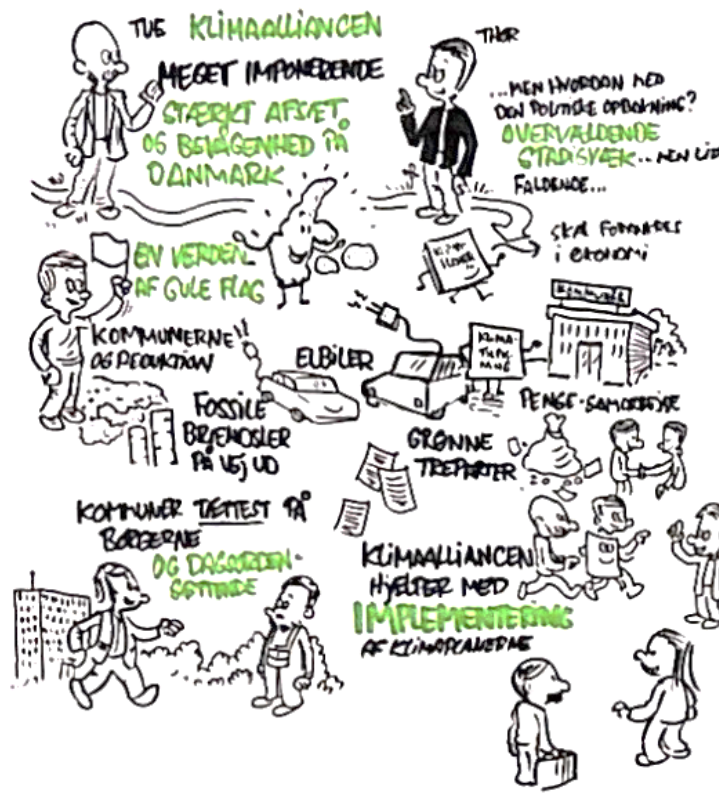 TUE KLIMAALLIANCEN
MEGET IMPONERENDE
STÆRKT AFSÆT
OG BEVÅGENHED PÅ
DANMARK
THOR
...MEN HVORDAN MED
DEN POLITISKE OPBAKNING?
OVERVÆLDENDE
STADIGVÆK... MEN LIDT
FALDENDE...
SKAL FORMÅDES
I ØKONOMI
EN VERDEN
AF GULE FLAG
KOMMUNERNE
OG PRODUKTION
ELBILER
FOSSILE
BRÆNDSLER
PÅ VEJ UD
PENGE-SAMARBEJDE
GRØNNE
TREPARTER
KOMMUNER TÆTTEST PÅ
BORGERNE
OG DAGSORDEN-
SÆTTENDE
KLIMAALLIANCEN
HJÆLPER MED
IMPLEMENTERING
AF KLIMAPLANERNE